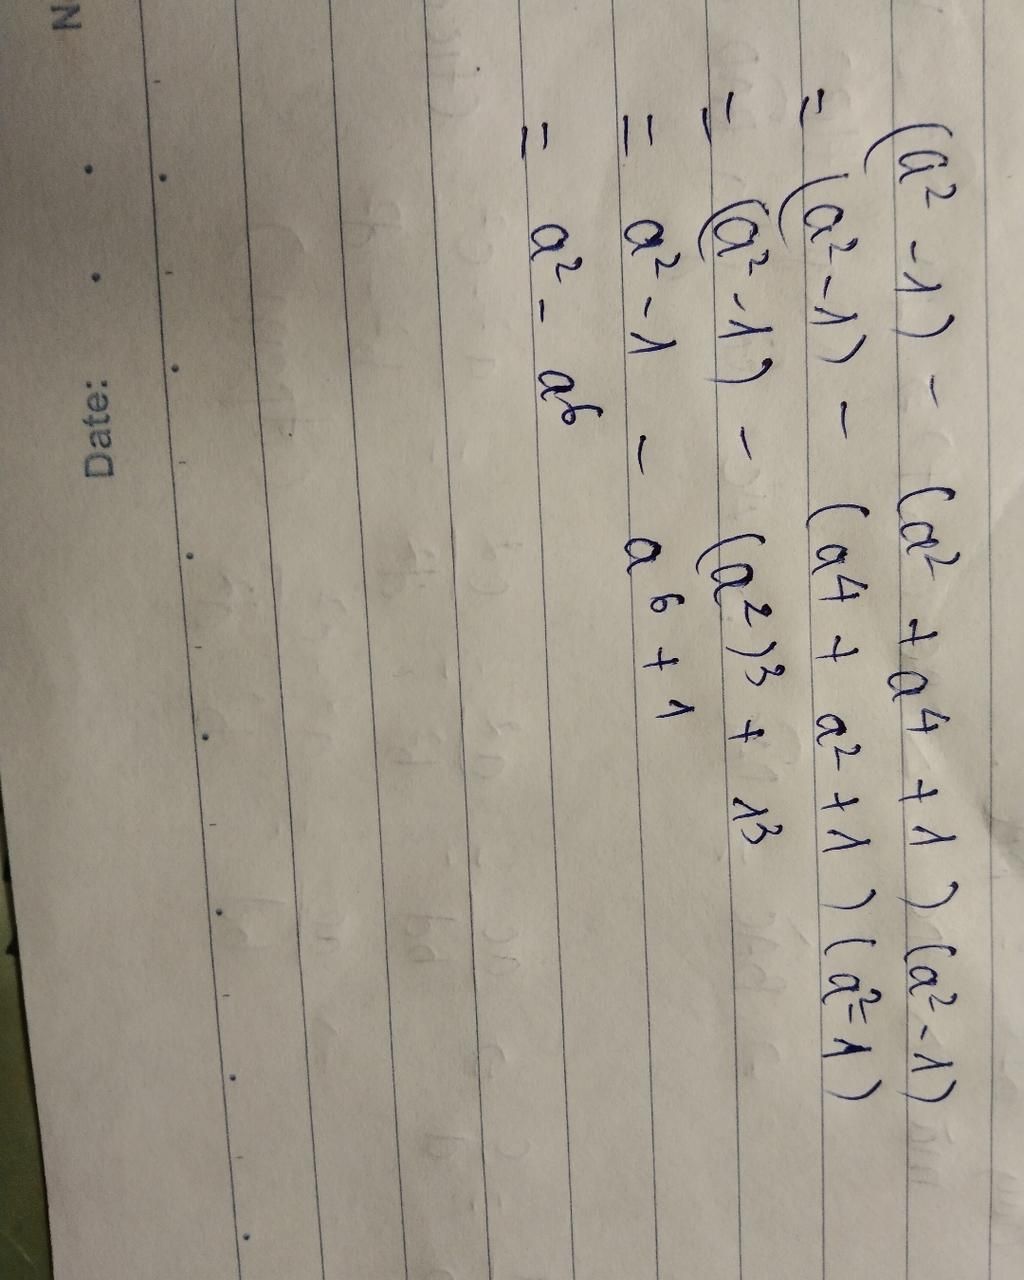 N
Date:
(a² - 1) - (a² + a⁴ + 1) (a² - 1)
= (a² - 1) - (a⁴ + a² + 1) (a² - 1)
= (a² - 1) - (a²)³ + 1³
= a² - 1 - a⁶ + 1
= a² - a⁶